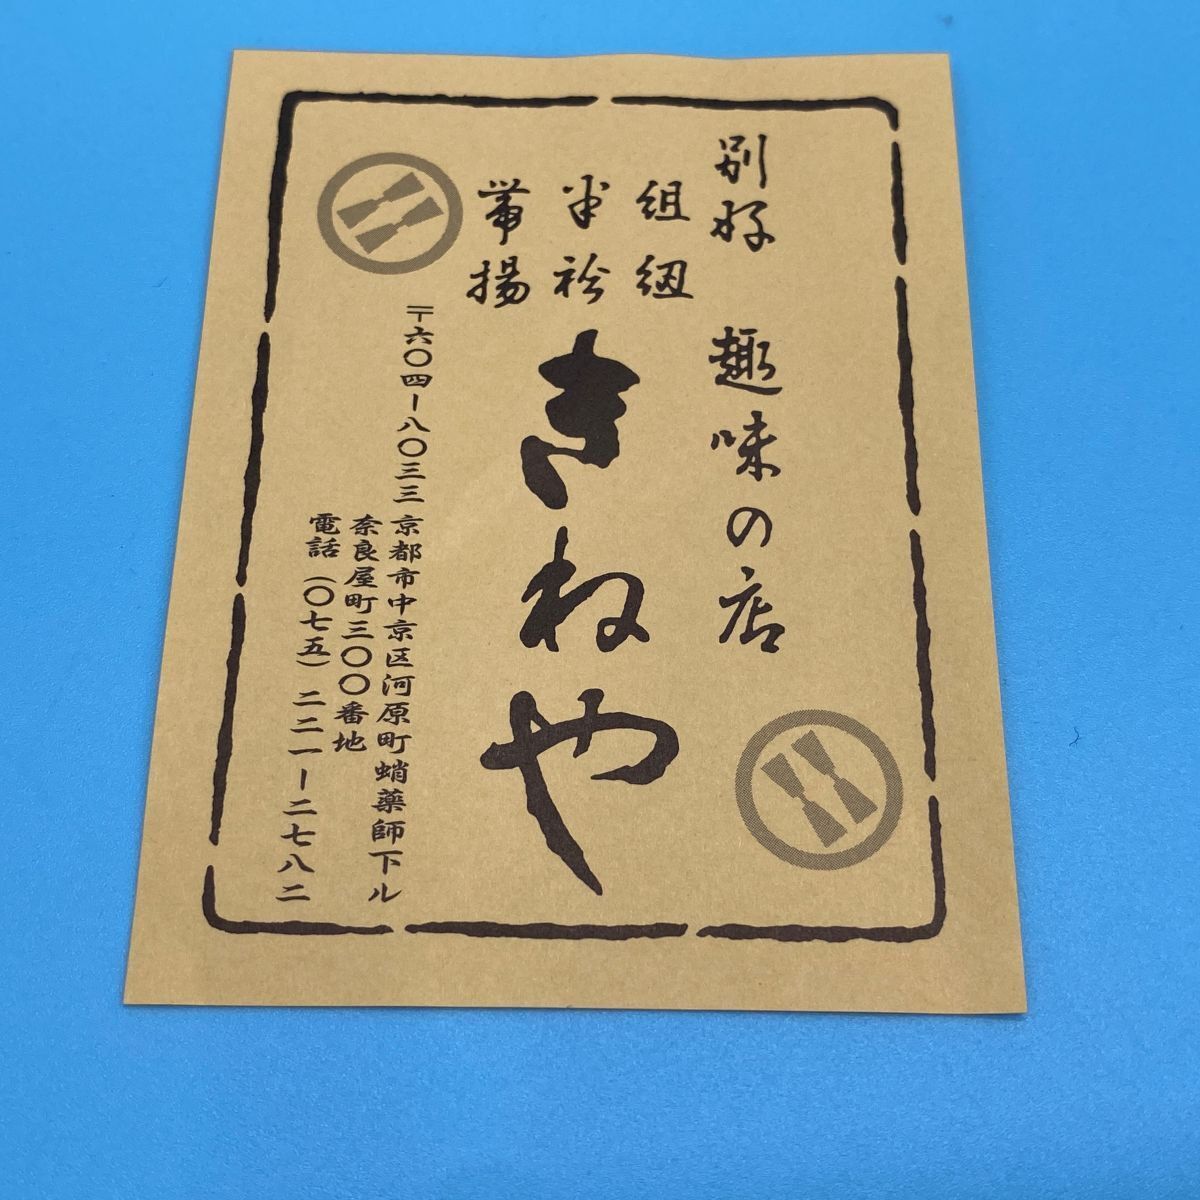 別好 趣味の店
組紐
半衿
帯揚
きねや
〒六〇四ー八〇三三
京都市中京区河原町蛸薬師下ル
奈良屋町三〇〇番地
電話(〇七五)二二一ー二七八二